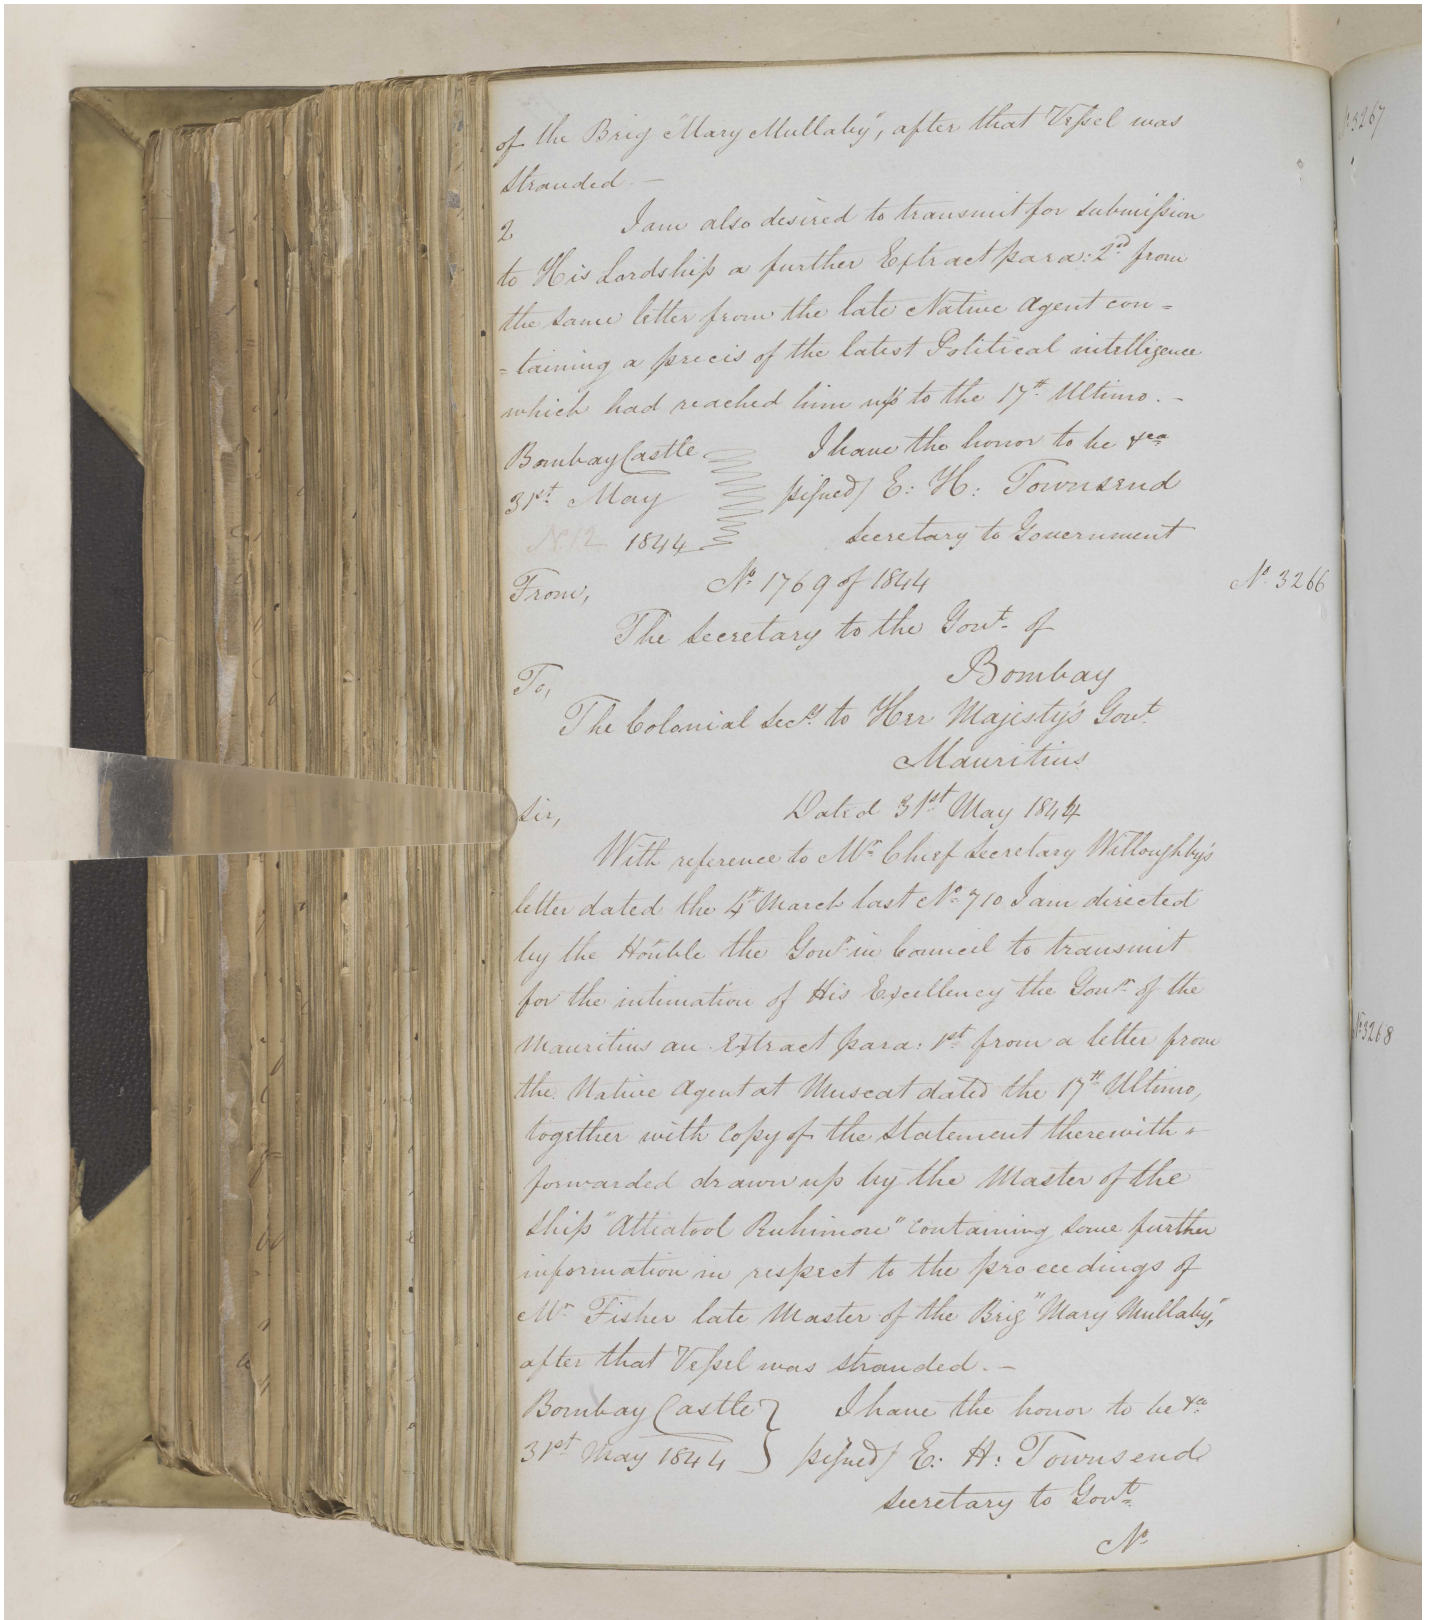 of the Brig Mary Mullaby", after that Vessel was
stranded. —
2 I am also desired to transmit for submission
to His Lordship a further Extract para: 2d from
the same letter from the late Native Agent con=
=taining a precis of the latest Political intelligence
which had reached him up to the 17th Ultimo. —
Bombay Castle I have the honor to be &ca
31st May signed/ E: H: Townsend
No 12 1844 Secretary to Government
From, No 1769 of 1844 No 3266
The Secretary to the Govt. of
Bombay
To,
The Colonial Secy. to Her Majesty's Govt.
Mauritius
Sir, Dated 31st May 1844
With reference to Mr Chief Secretary Willoughby's
letter dated the 4th March last No 710 I am directed
by the Honble the Govr in Council to transmit
for the intimation of His Excellency the Govr. of the
Mauritius an Extract para: 1st from a letter from
the Native Agent at Muscat dated the 17th Ultimo,
together with copy of the Statement therewith
forwarded drawn up by the Master of the
Ship "Attiatool Ruhimon" containing some further
information in respect to the proceedings of
Mr Fisher late Master of the Brig "Mary Mullaby",
after that Vessel was stranded. —
Bombay Castle } I have the honor to be &ca
31st May 1844 signed/ E: H: Townsend
Secretary to Govt.
No
No 3267
No 3268